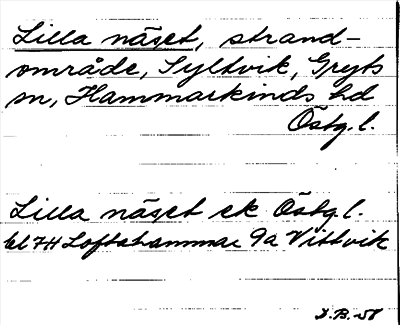 Lilla näset, strand-
område, Syltvik, Gryts
sn, Hammarkinds hd
Östg. l.
Lilla näset ek Östg. l.
bl 7H Loftahammar 9a Vittvik
J.B.-58